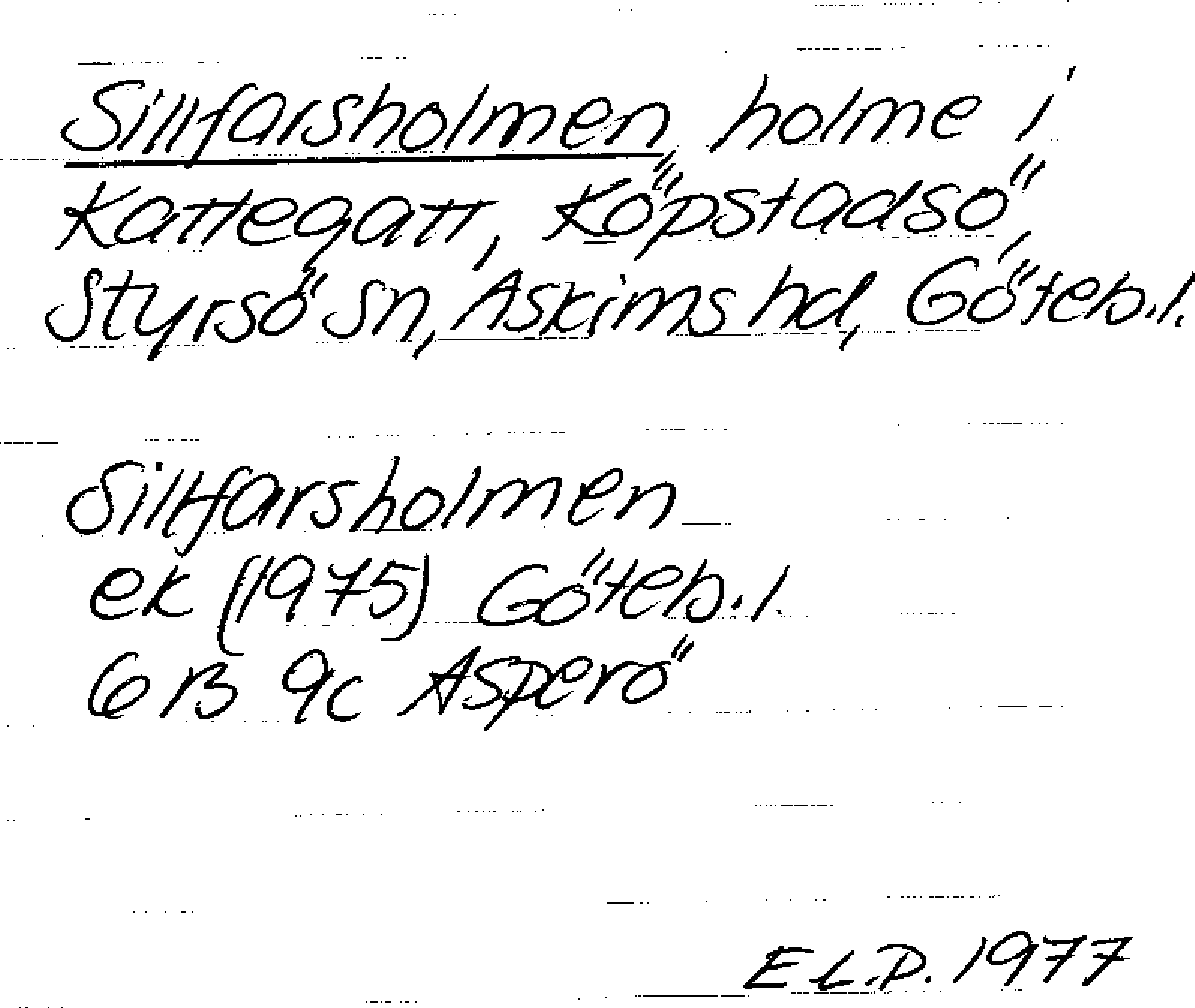 Sillfarsholmen, holme i
Kattegatt, Köpstadsö,
Styrsö sn, Askims hd, Göteb.l.
Sillfarsholmen
ek (1975) Göteb.l.
6B 9c Asperö
E L.P. 1977